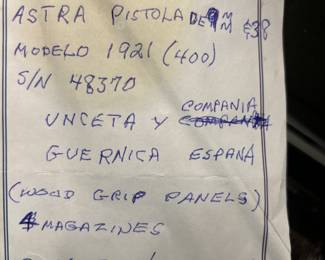 ASTRA PISTOLA DE 9MM £38
MODELO 1921 (400)
S/N 48370
COMPANIA
UNCETA Y
GUERNICA ESPAÑA
(WOOD GRIP PANELS)
4 MAGAZINES